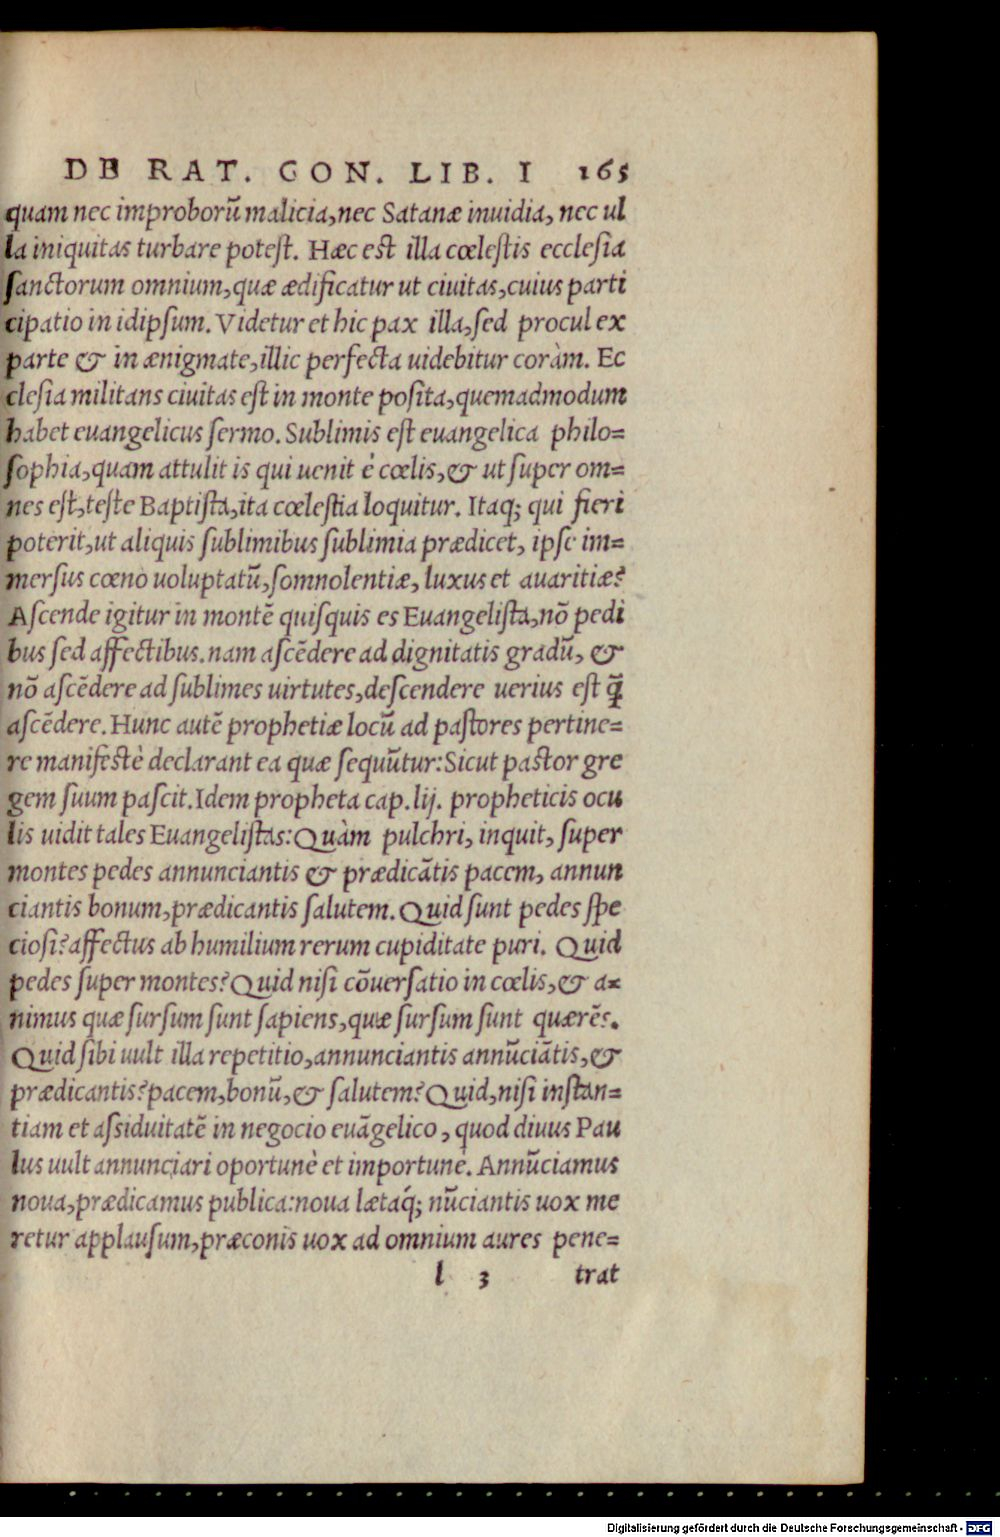 DE RAT. CON. LIB. I 165
quam nec improborũ malicia, nec Satanæ inuidia, nec ul
la iniquitas turbare potest. Hæc est illa cœlestis ecclesia
sanctorum omnium, quæ ædificatur ut ciuitas, cuius parti
cipatio in idipsum. Videtur et hic pax illa, sed procul ex
parte & in ænigmate, illic perfecta uidebitur coràm. Ec
clesia militans ciuitas est in monte posita, quemadmodum
habet euangelicus sermo. Sublimis est euangelica philo=
sophia, quam attulit is qui uenit è cœlis, & ut super om=
nes est, teste Baptista, ita cœlestia loquitur. Itaq; qui fieri
poterit, ut aliquis sublimibus sublimia prædicet, ipse im=
mersus cœno uoluptatũ, somnolentiæ, luxus et auaritiæ?
Ascende igitur in montẽ quisquis es Euangelista, nõ pedi
bus sed affectibus. nam ascẽdere ad dignitatis gradũ, &
nõ ascẽdere ad sublimes uirtutes, descendere uerius est q̃
ascẽdere. Hunc autẽ prophetiæ locũ ad pastores pertine=
re manifestè declarant ea quæ sequũtur: Sicut pastor gre
gem suum pascit. Idem propheta cap. lij. propheticis ocu
lis uidit tales Euangelistas: Quàm pulchri, inquit, super
montes pedes annunciantis & prædicãtis pacem, annun
ciantis bonum, prædicantis salutem. Quid sunt pedes spe
ciosi? affectus ab humilium rerum cupiditate puri. Quid
pedes super montes? Quid nisi cõuersatio in cœlis, & a=
nimus quæ sursum sunt sapiens, quæ sursum sunt quærẽs.
Quid sibi uult illa repetitio, annunciantis annũciãtis, &
prædicantis? pacem, bonũ, & salutem? Quid, nisi instan=
tiam et assiduitatẽ in negocio euãgelico, quod diuus Pau
lus uult annunciari oportunè et importunè. Annũciamus
noua, prædicamus publica: noua lætaq́; nũciantis uox me
retur applausum, præconis uox ad omnium aures pene=
l 3 trat
Digitalisierung gefördert durch die Deutsche Forschungsgemeinschaft - DFG